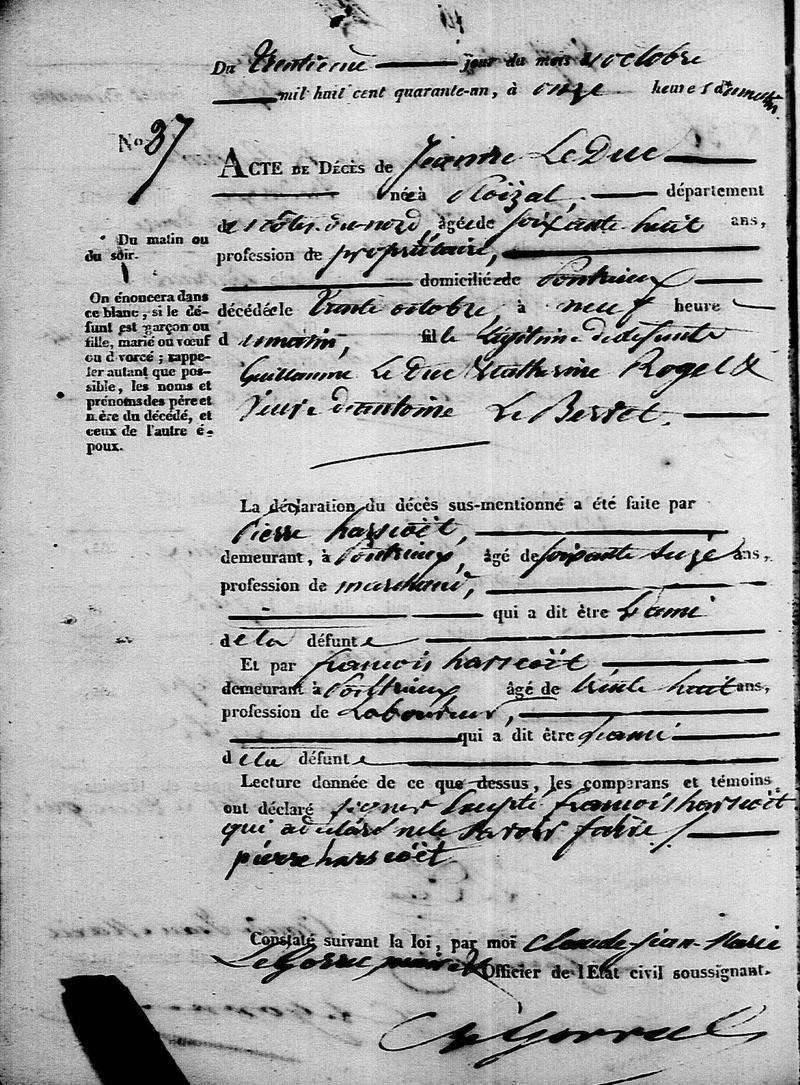 Du trentieme jour du mois d'octobre
mil huit cent quarante-un, à onze heures du matin.
No 37
ACTE DE DÉCÈS de Jeanne Le Duc
née à Ploëzal, département
des Côtes-du-nord, âgée de soixante huit ans,
profession de propriétaire,
domiciliée de Pontrieux
décédée le trente octobre, à neuf heure
d u matin, fille légitime de défunts
Guillaume Le Duc et Catherine Rogel &
Veuve d'antoine Le Berret.
Du matin ou
du soir.
On énoncera dans
ce blanc, si le dé-
funt est garçon ou
fille, marié ou vœuf
ou divorcé ; rappe-
ler autant que pos-
sible, les noms et
prénoms des père et
mère du décédé, et
ceux de l'autre é-
poux.
La déclaration du décès sus-mentionné a été faite par
Pierre harscoët,
demeurant, à Pontrieux, âgé de soixante seize ans,
profession de marchand,
qui a dit être l'ami
de la défunte
Et par francois harscoët
demeurant à Pontrieux âgé de trente huit ans,
profession de Laboureur,
qui a dit être l'ami
de la défunte
Lecture donnée de ce que dessus, les comparans et témoins
ont déclaré signer excepté francois harscoët
qui a déclaré ne le savoir faire.
pierre harscoët
Constaté suivant la loi, par moi Claude-jean-Marie
Le Gorrec maire & Officier de l'Etat civil soussignant.
Le Gorrec